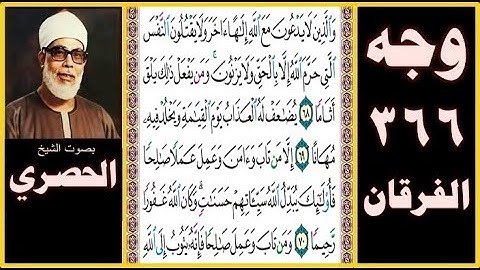 وجه
٣٦٦
الفرقان
وَالَّذِينَ لَا يَدْعُونَ مَعَ اللَّهِ إِلَٰهًا ءَاخَرَ وَلَا يَقْتُلُونَ النَّفْسَ
الَّتِي حَرَّمَ اللَّهُ إِلَّا بِالْحَقِّ وَلَا يَزْنُونَ ۚ وَمَن يَفْعَلْ ذَٰلِكَ يَلْقَ
أَثَامًا ٦٨ يُضَٰعَفْ لَهُ الْعَذَابُ يَوْمَ الْقِيَٰمَةِ وَيَخْلُدْ فِيهِۦ
مُهَانًا ٦٩ إِلَّا مَن تَابَ وَءَامَنَ وَعَمِلَ عَمَلًا صَٰلِحًا
فَأُوْلَٰٓئِكَ يُبَدِّلُ اللَّهُ سَيِّـَٔاتِهِمْ حَسَنَٰتٍ ۗ وَكَانَ اللَّهُ غَفُورًا
رَّحِيمًا ٧٠ وَمَن تَابَ وَعَمِلَ صَٰلِحًا فَإِنَّهُۥ يَتُوبُ إِلَى اللَّهِ
بصوت الشيخ
الحصري